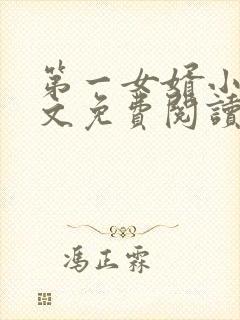 第一女婿小
文免費閱讀
馮正霖